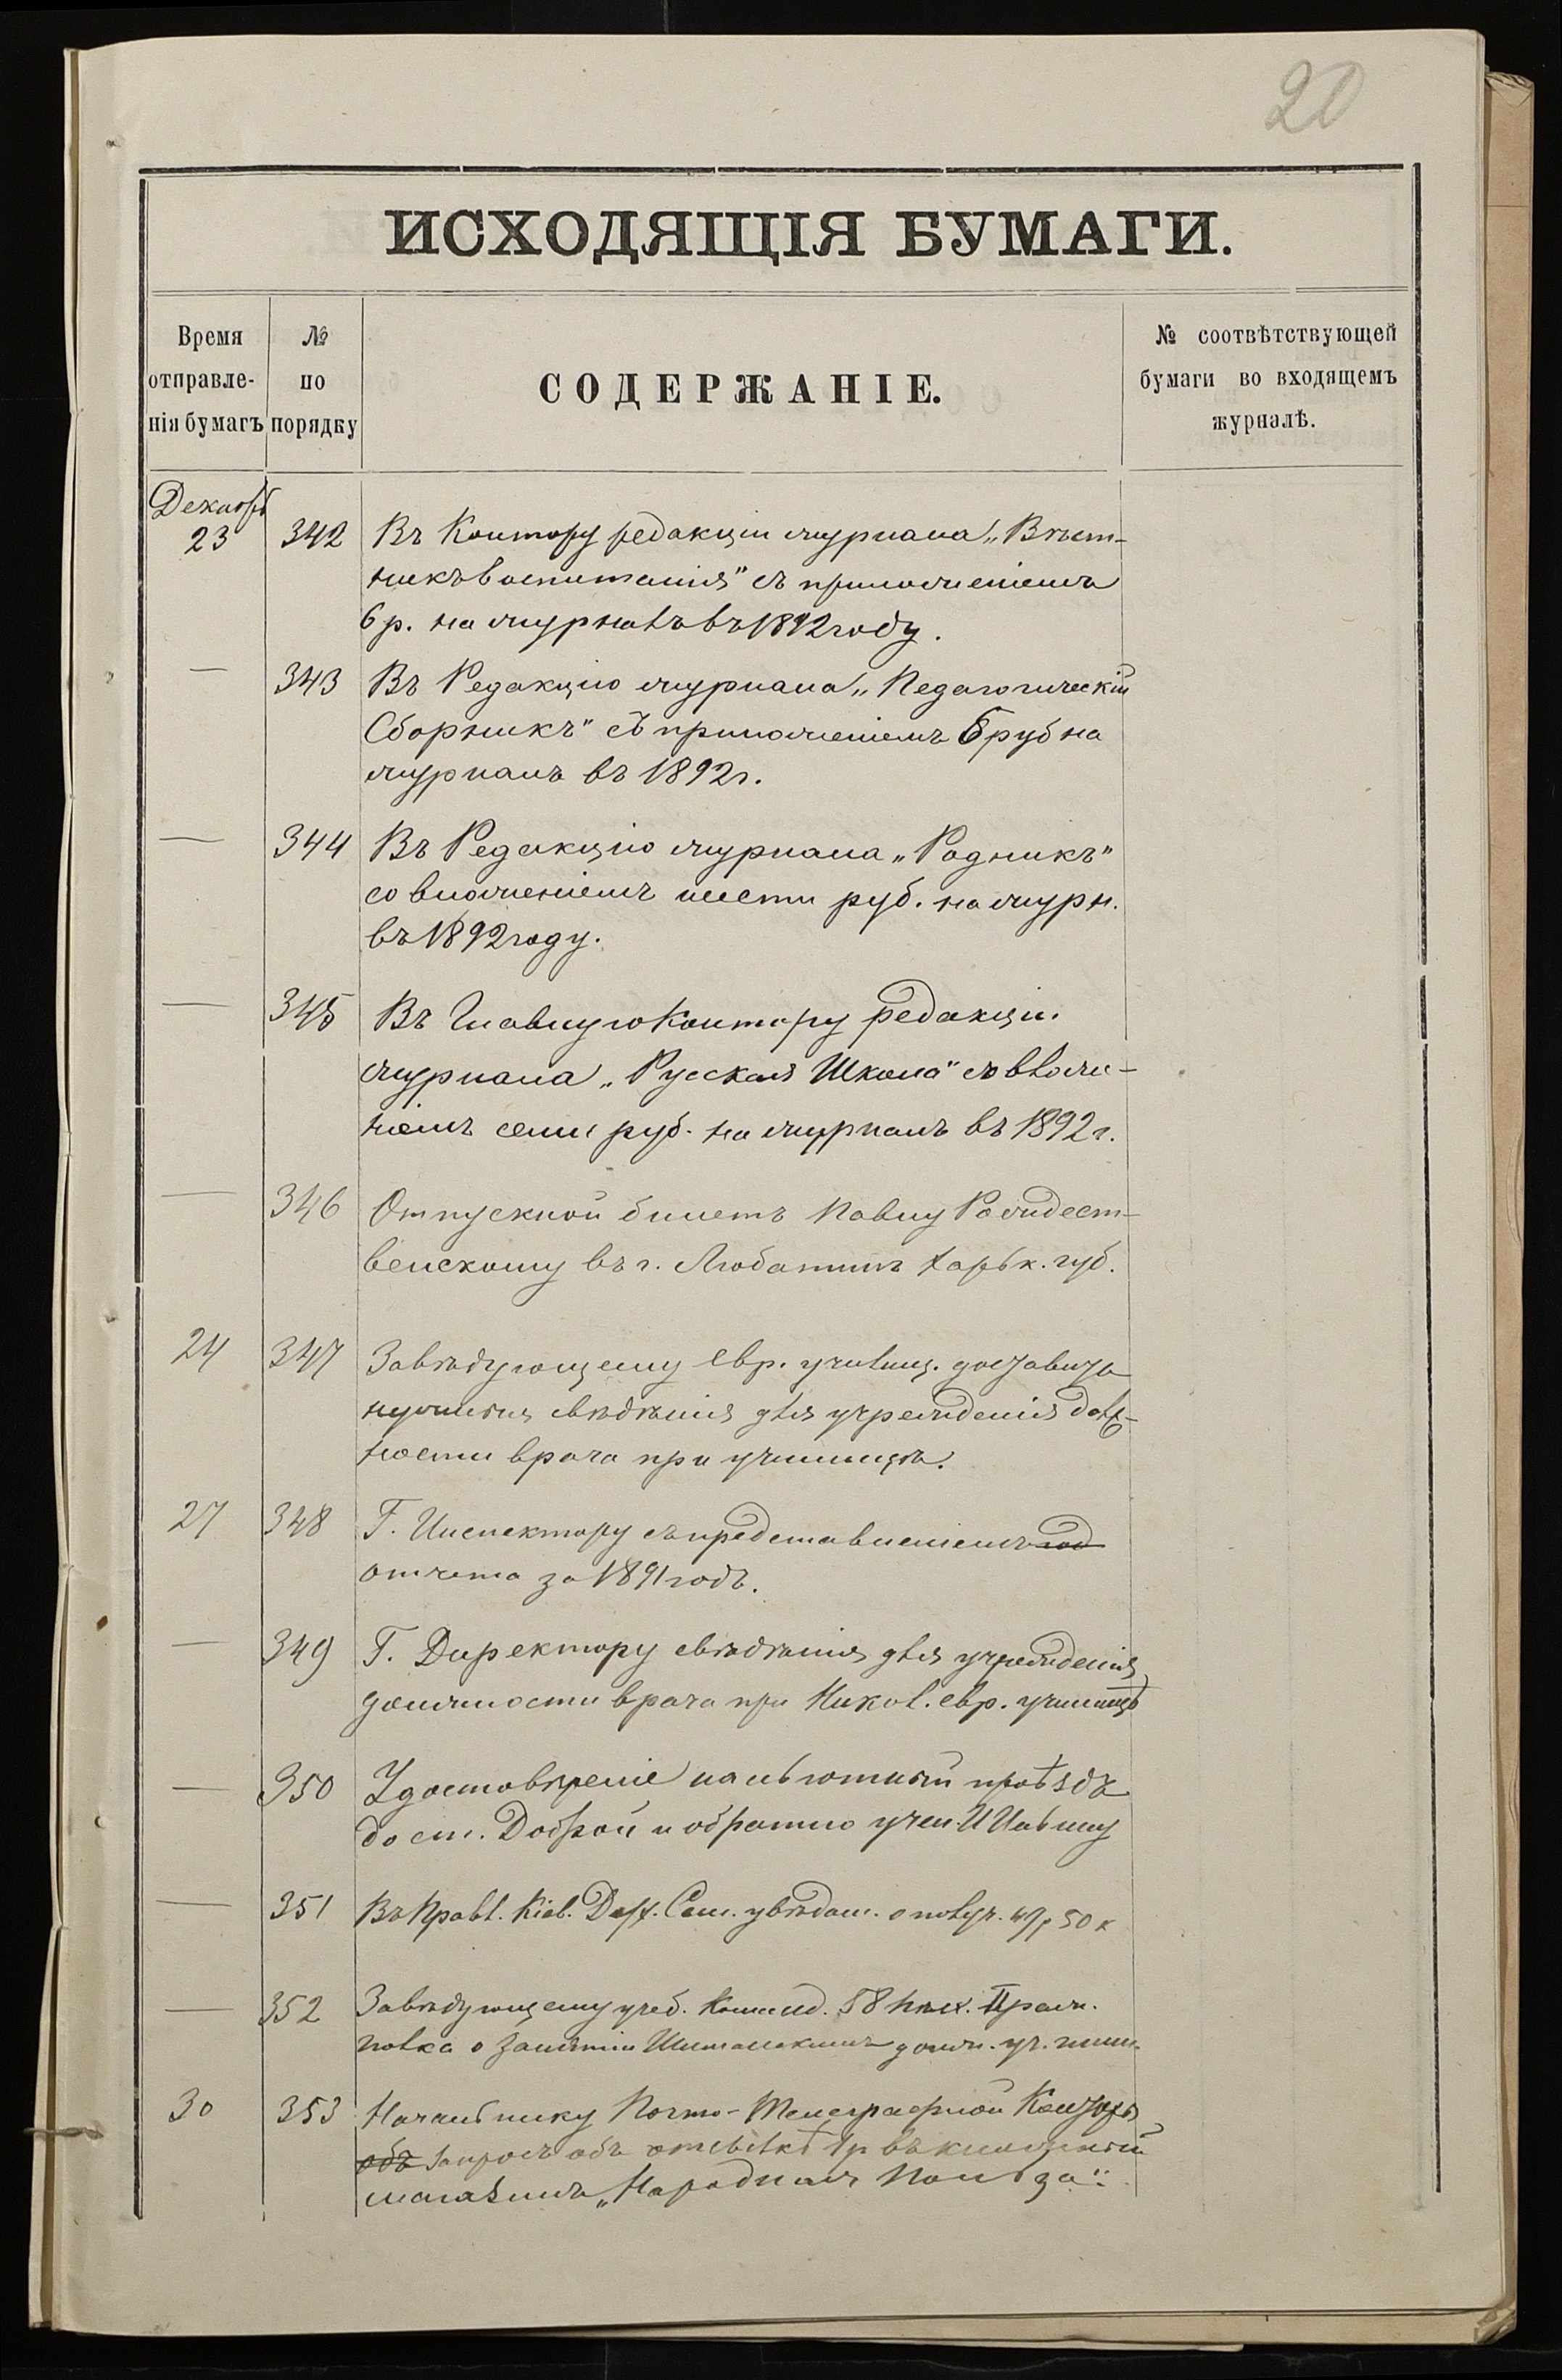 20
ИСХОДЯЩІЯ БУМАГИ.
Время отправле-нія бумагъ
№ по порядку
СОДЕРЖАНІЕ.
№ соотвѣтствующей бумаги во входящемъ журналѣ.
Декабрь
23 342 Въ Контору редакціи журнала „Вѣст-
никъ воспитанія" съ приложеніемъ
6 р. на журналъ въ 1892 году.
— 343 Въ Редакцію журнала „Педагогическій
Сборникъ" съ приложеніемъ 6 руб на
журналъ въ 1892 г.
— 344 Въ Редакцію журнала „Родникъ"
со вложеніемъ шести руб. на журн.
въ 1892 году.
— 345 Въ Главную Контору редакціи.
журнала „Русская Школа" со вложе-
ніемъ семи руб. на журналъ въ 1892 г.
— 346 Отпускной билетъ Павлу Рождест-
венскому въ г. Люботинъ Харьк. губ.
24 347 Завѣдующему евр. училищ. доставить
нужныя свѣдѣнія для учрежденія долж-
ности врача при училищѣ.
27 348 Г. Инспектору съ представленіемъ год
отчета за 1891 годъ.
— 349 Г. Директору свѣдѣнія для учрежденія
должности врача при Никол. евр. училищѣ
— 350 Удостовѣреніе на льготный проѣздъ
до ст. Доброй и обратно учен. И Ильину
— 351 Въ Правл. Кіев. Дух. Сем. увѣдом. о получ. 50 к
— 352 Завѣдующему учеб. Команд. 58 пѣх. Праж.
полка о занятіи должн. уч. пѣнія
30 353 Начальнику Почто-Телеграфной Конторы
объ запросъ объ отсылкѣ 1 р въ книжный
магазинъ „Народная Польза".